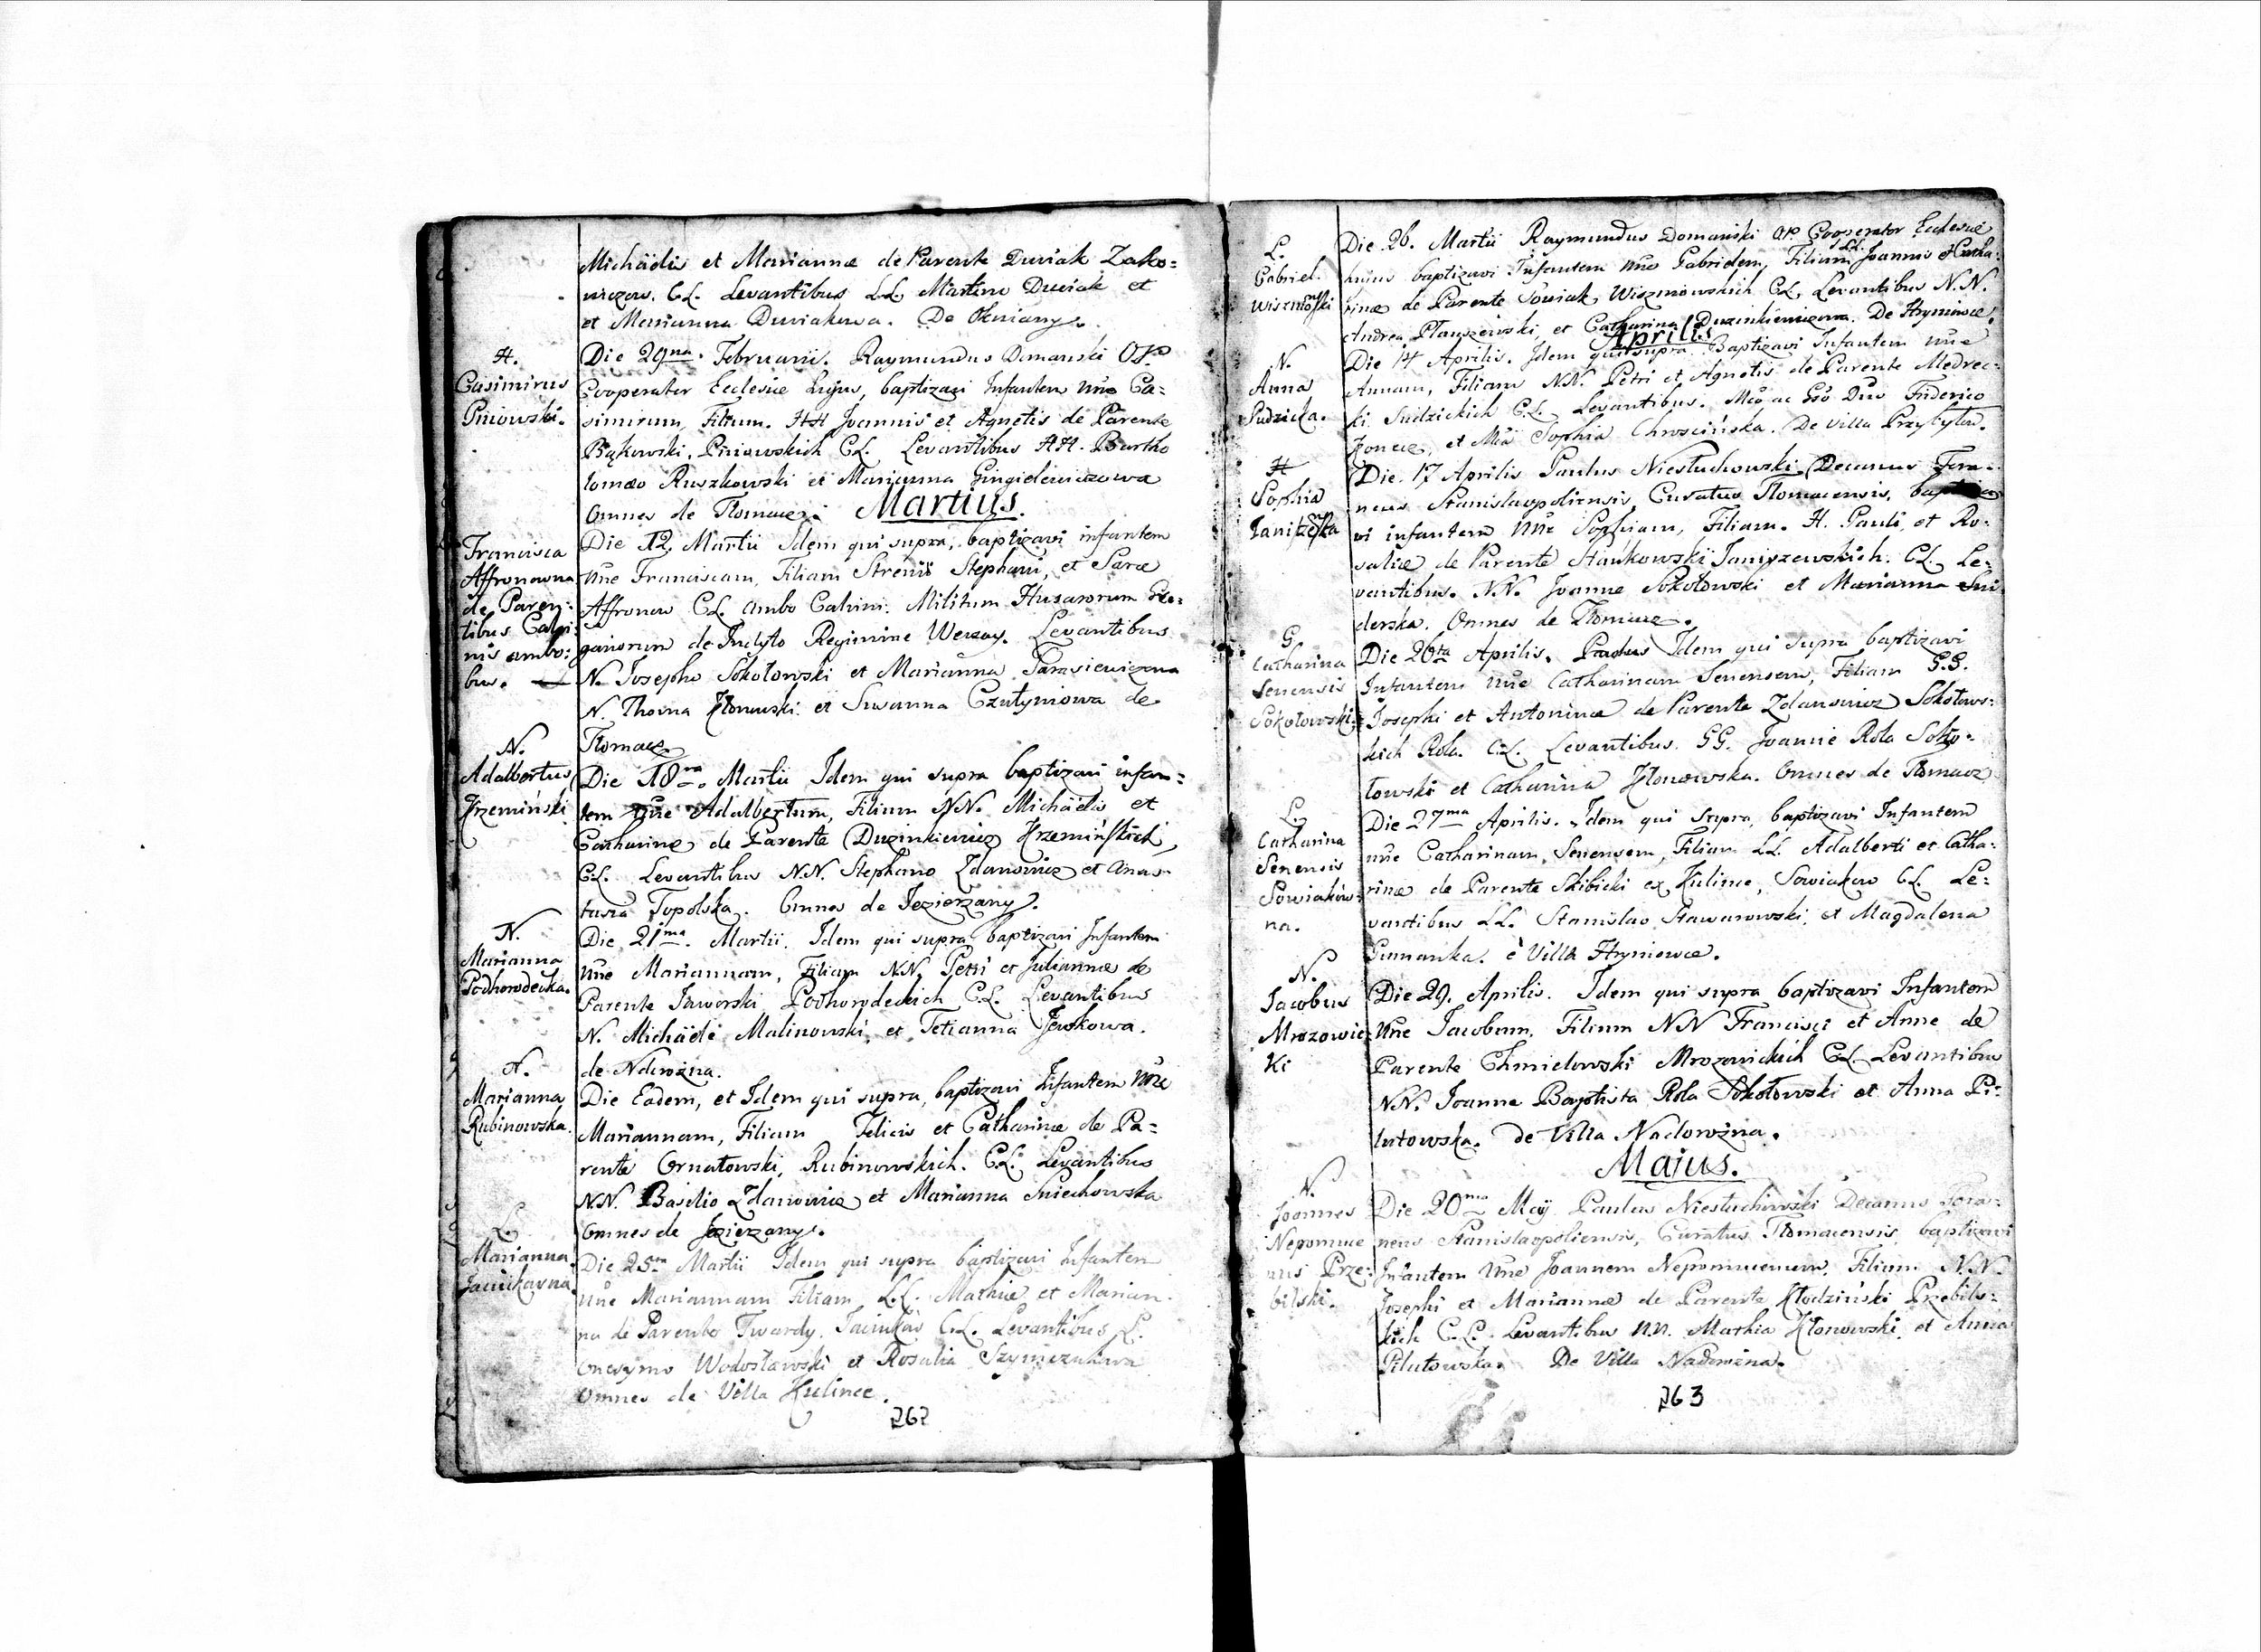 Michäelis et Mariannæ de Parente Duriak Zako=
wiczow. C.L. Levantibus L.L. Martino Duriak et
et Marianna Duriakowa. De Okniany.
H.
Casimirus
Piniowski.
Die 29na. Februarii. Raymundus Domanski OP
Cooperator Ecclesiæ hujus, baptizavi Infantem nñe Ca=
simirum, Filium. HH Joannis et Agnetis de Parente
Bąkowski, Piniowskich C.L. Levantibus HH. Bartho
lomæo Ruszkowski et Marianna
Omnes de Tłomacz. Martius.
Francisca
Affronowna
de Paren=
tibus Calvi=
nis ambo=
bus.
Die 12. Martii Idem qui supra, baptizavi infantem
nñe Franciscam, Filiam Strenui Stephani, et Saræ
Affronow C.L. ambo Calvini. Militum Husarorum
de Indyto Regimine Weczay. Levantibus
N. Josepho Sokołowski et Marianna Tarasiewiczowa
N. Thoma Kłonowski et Susanna Czutyniowa de
Tłomacz
N.
Adalbertus
Krzemiński
Die 18va. Martii Idem qui supra baptizavi infan=
tem nñe Adalbertum, Filium N.N. Michäelis et
Catharinæ de Parente Duzinkiewicz Krzemińskich
C.L. Levantibus N.N. Stephano Zdanowicz et Anas=
tasia Topolska. Omnes de Jezierzany.
N.
Marianna
Podhorodecka.
Die 21ma. Martii. Idem qui supra baptizavi Infantem
nñe Mariannam, Filiam N.N. Petri et Julianna de
Parente Jaworski Podhorodeckich C.L. Levantibus
N. Michäele Malinowski, et Tetianna Jeskowa.
de Ndrożna.
N.
Marianna
Rubinowska.
Die Eadem, et Idem qui supra, baptizavi Infantem nñe
Mariannam, Filiam Felicis et Catharinæ de Pa=
rente Ornatowski, Rubinowskich. C.L. Levantibus
N.N. Basilio Zdanowicz et Marianna Sniechowska
Omnes de Jezierzany.
L.
Marianna
Jacinkowna
Die 25ta Martii Idem qui supra baptizavi Infantem
nñe Mariannam Filiam L.L. Mathiæ et Marian=
na de Parente Twardy. Jacinkow C.L. Levantibus L.
Onesymo Wodosławski et Rosalia
Omnes de Villa Kulince.
262
L.
Gabriel.
Wiszniowski
Die 26. Martii Raymundus Domański OP. Cooperator Ecclesiæ
hujus baptizavi Infantem nñe Gabrielem, Filium LL. Joannis et Catha=
rinæ de Parente Sowiak, Wiszniowskich C.L. Levantibus N.N.
Andrea Płauszewski, et Catharina Duzinkiewiczowa. De Hryniowce.
Aprilis
N.
Anna
Sudzicka.
Die 14 Aprilis. Idem qui supra. Baptizavi Infantem nñe
Annam, Filiam N.N. Petri et Agnetis de Parente Medrec=
ki Sudzickich C.L. Levantibus. Mco ac Gso Dno Friderico
et Mca Sophia Chroscińska. De villa Przybyłow.
H
Sophia
Die. 17 Aprilis Paulus Niesłuchowski Decanus Fora=
neus Stanislaopoliensis, Curatus Tłomacensis,
vi infantem nñe Sophiam, Filiam. H. Pauli, et Ro=
saliæ de Parente Stankowski Janiszewskich. C.L. Le=
vantibus. N.N. Joanne Sokołowski et Marianna Sni
derska. Omnes de Tłomacz.
G.
Catharina
Senensis
Sokołowski.
Die 26ta Aprilis. Idem qui supra baptizavi
Infantem nñe Catharinam Senensem, Filiam G.G.
Josephi et Antoninæ de Parente Zdanowicz Sokołows=
kich Rola. C.L. Levantibus. GG. Joanne Rola Soko=
łowski et Catharina Kłonowska. Omnes de Tłomacz
L.
Catharina
Senensis
Sowiakow=
na.
Die 27ma Aprilis. Idem qui supra, baptizavi Infantem
nñe Catharinam, Senensem, Filiam LL. Adalberti et Catha=
rinæ de Parente Skibicki ex Kulince, Sowiakow C.L. Le=
vantibus LL. Stanislao Stawarowski et Magdalena
Gumanka. è Villa Hryniowce.
N.
Jacobus
Mrozowic
ki
Die 29. Aprilis. Idem qui supra baptizavi Infantem
nñe Jacobum, Filium N.N Francisci et Annæ de
Parente Chmielowski Mrozowickich C.L. Levantibus
N.N. Joanne Baptista Rola Sokołowski et Anna Pi=
lutowska. De Villa Nadorożna.
Maius.
N.
Joannes
Nepomuce
nus Prze=
bilski.
Die 20ma Maij Paulus Niesłuchowski Decanus Fora=
neus Stanislaopoliensis, Curatus Tłomacensis, baptizavi
Infantem nñe Joannem Nepomucenum. Filium N.N.
Josephi et Mariannæ de Parente Kłodziński Przebils=
kich C.L. Levantibus N.N. Mathia Kłonowski, et Anna
Pilutowska. De Villa Nadorożna.
263